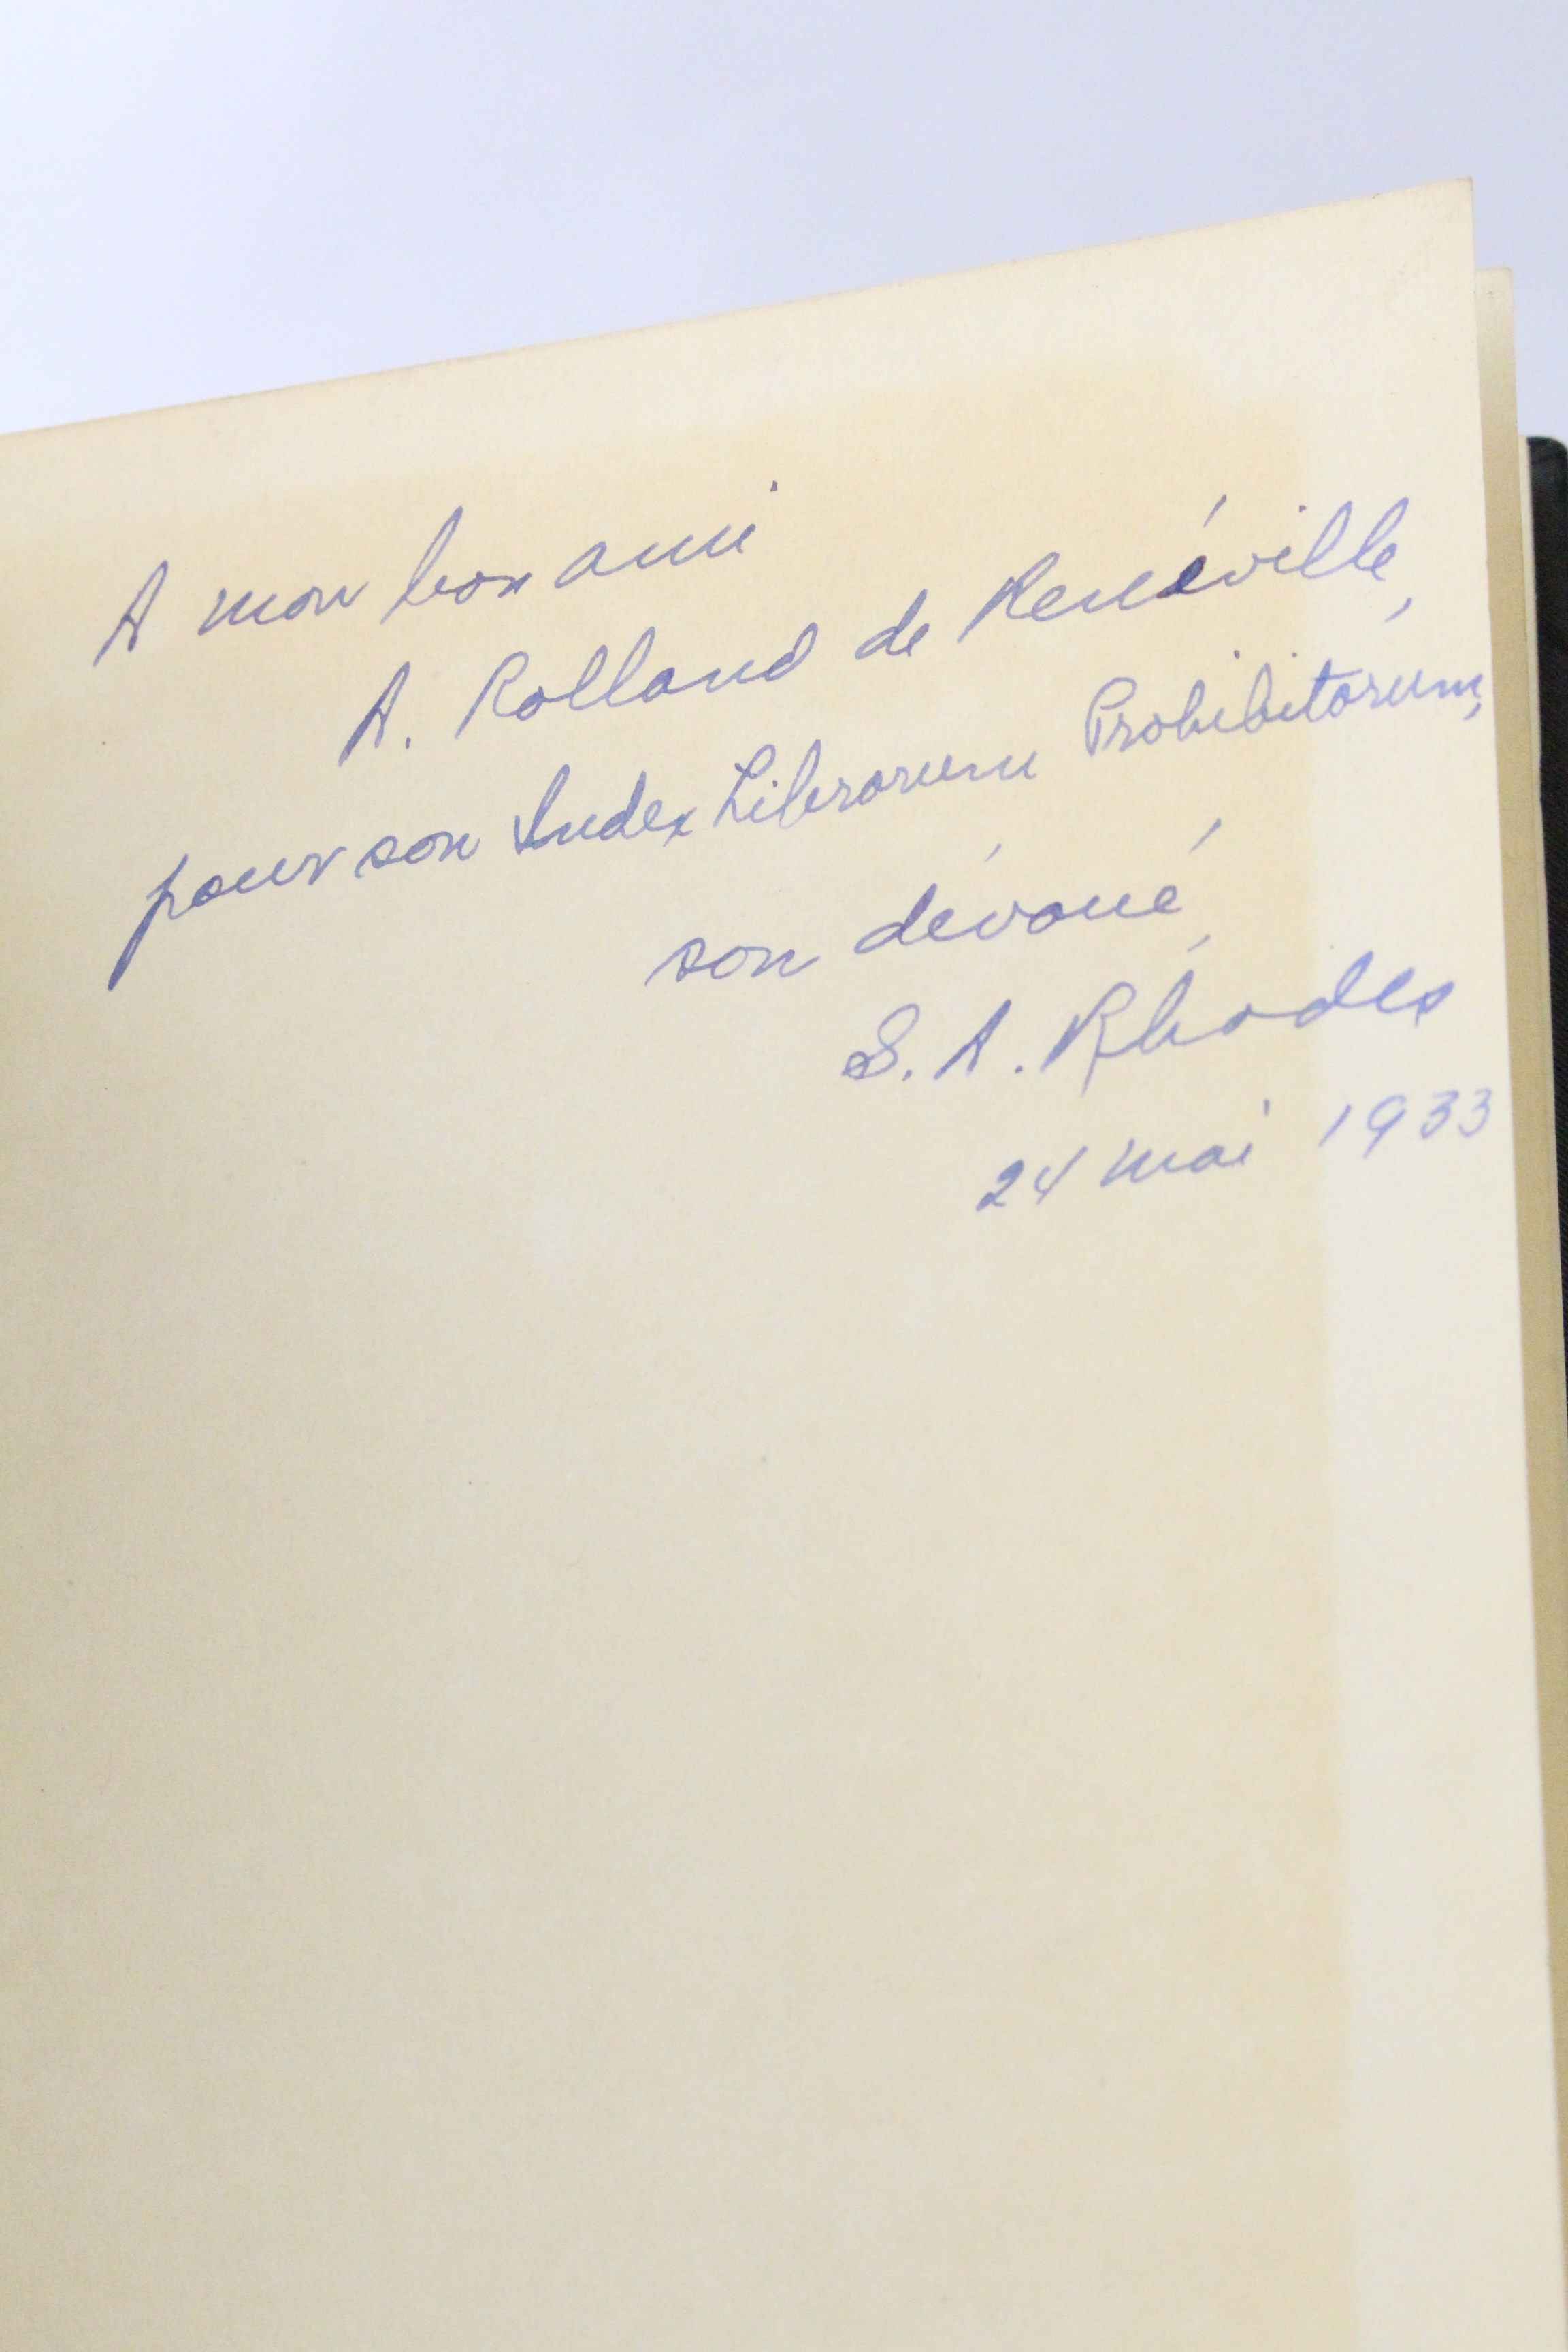 A mon bon ami
A. Rolland de Renéville,
pour son Index Librorum Prohibitorum,
son dévoué,
S. A. Rhodes
24 mai 1933